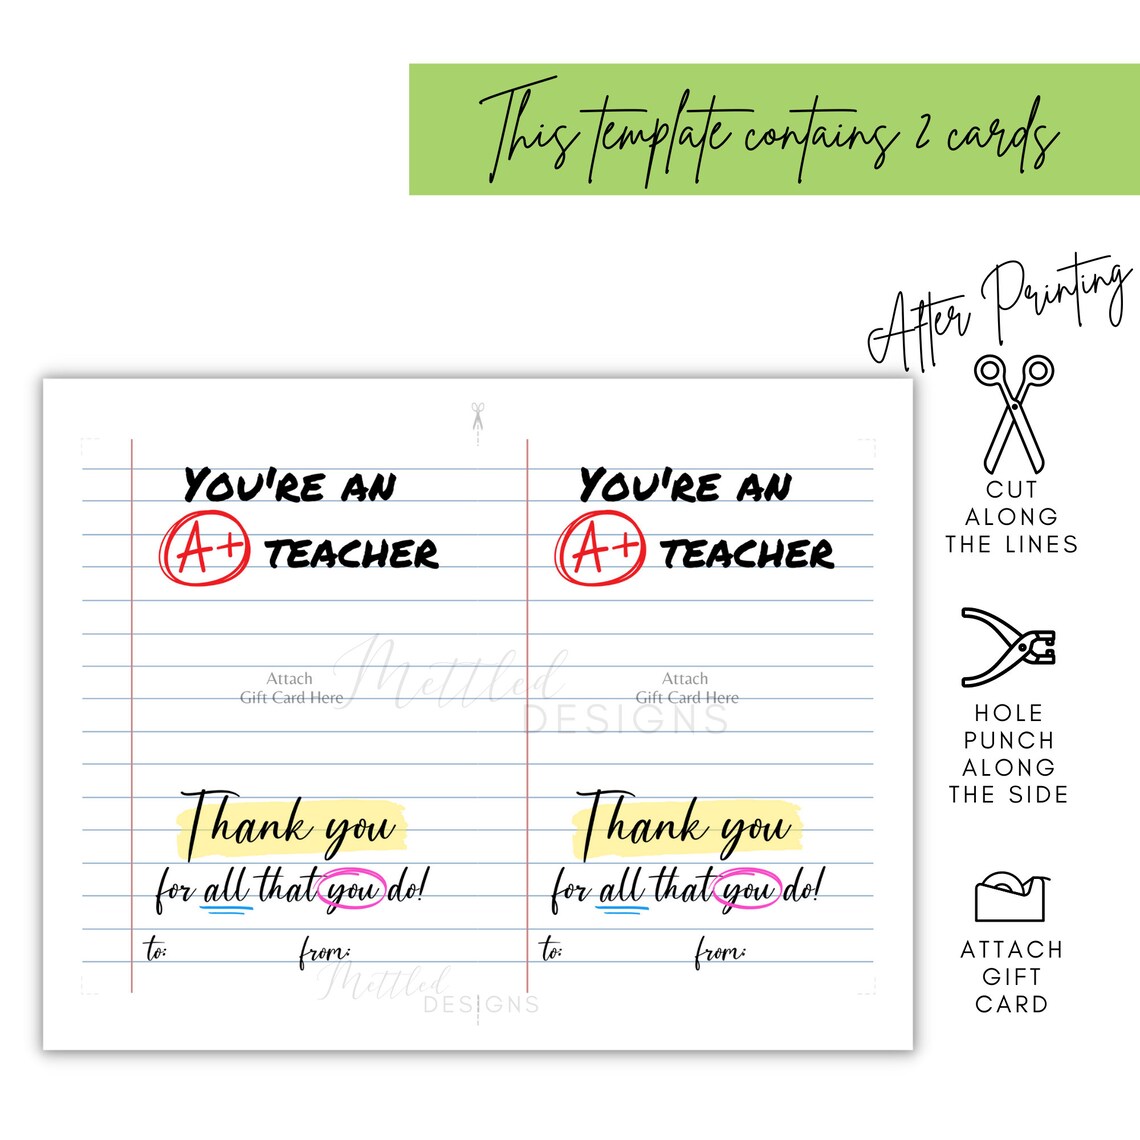 This template contains 2 cards
After Printing
CUT
ALONG
THE LINES
HOLE
PUNCH
ALONG
THE SIDE
ATTACH
GIFT
CARD
YOU'RE AN
A+ TEACHER
Attach
Gift Card Here
Thank you
for all that you do!
to: from:
YOU'RE AN
A+ TEACHER
Attach
Gift Card Here
Thank you
for all that you do!
to: from:
Mettled
DESIGNS
Mettled
DESIGNS